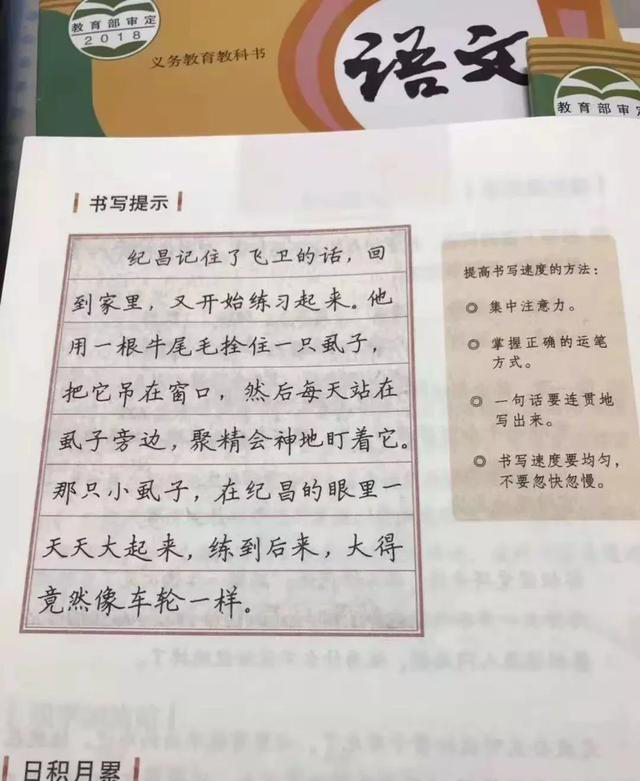 教育部审定
2018
义务教育教科书
语文
教育部审定
书写提示
纪昌记住了飞卫的话，回
到家里，又开始练习起来。他
用一根牛尾毛拴住一只虱子，
把它吊在窗口，然后每天站在
虱子旁边，聚精会神地盯着它。
那只小虱子，在纪昌的眼里一
天天大起来，练到后来，大得
竟然像车轮一样。
提高书写速度的方法：
◎ 集中注意力。
◎ 掌握正确的运笔
方式。
◎ 一句话要连贯地
写出来。
◎ 书写速度要均匀，
不要忽快忽慢。
日积月累